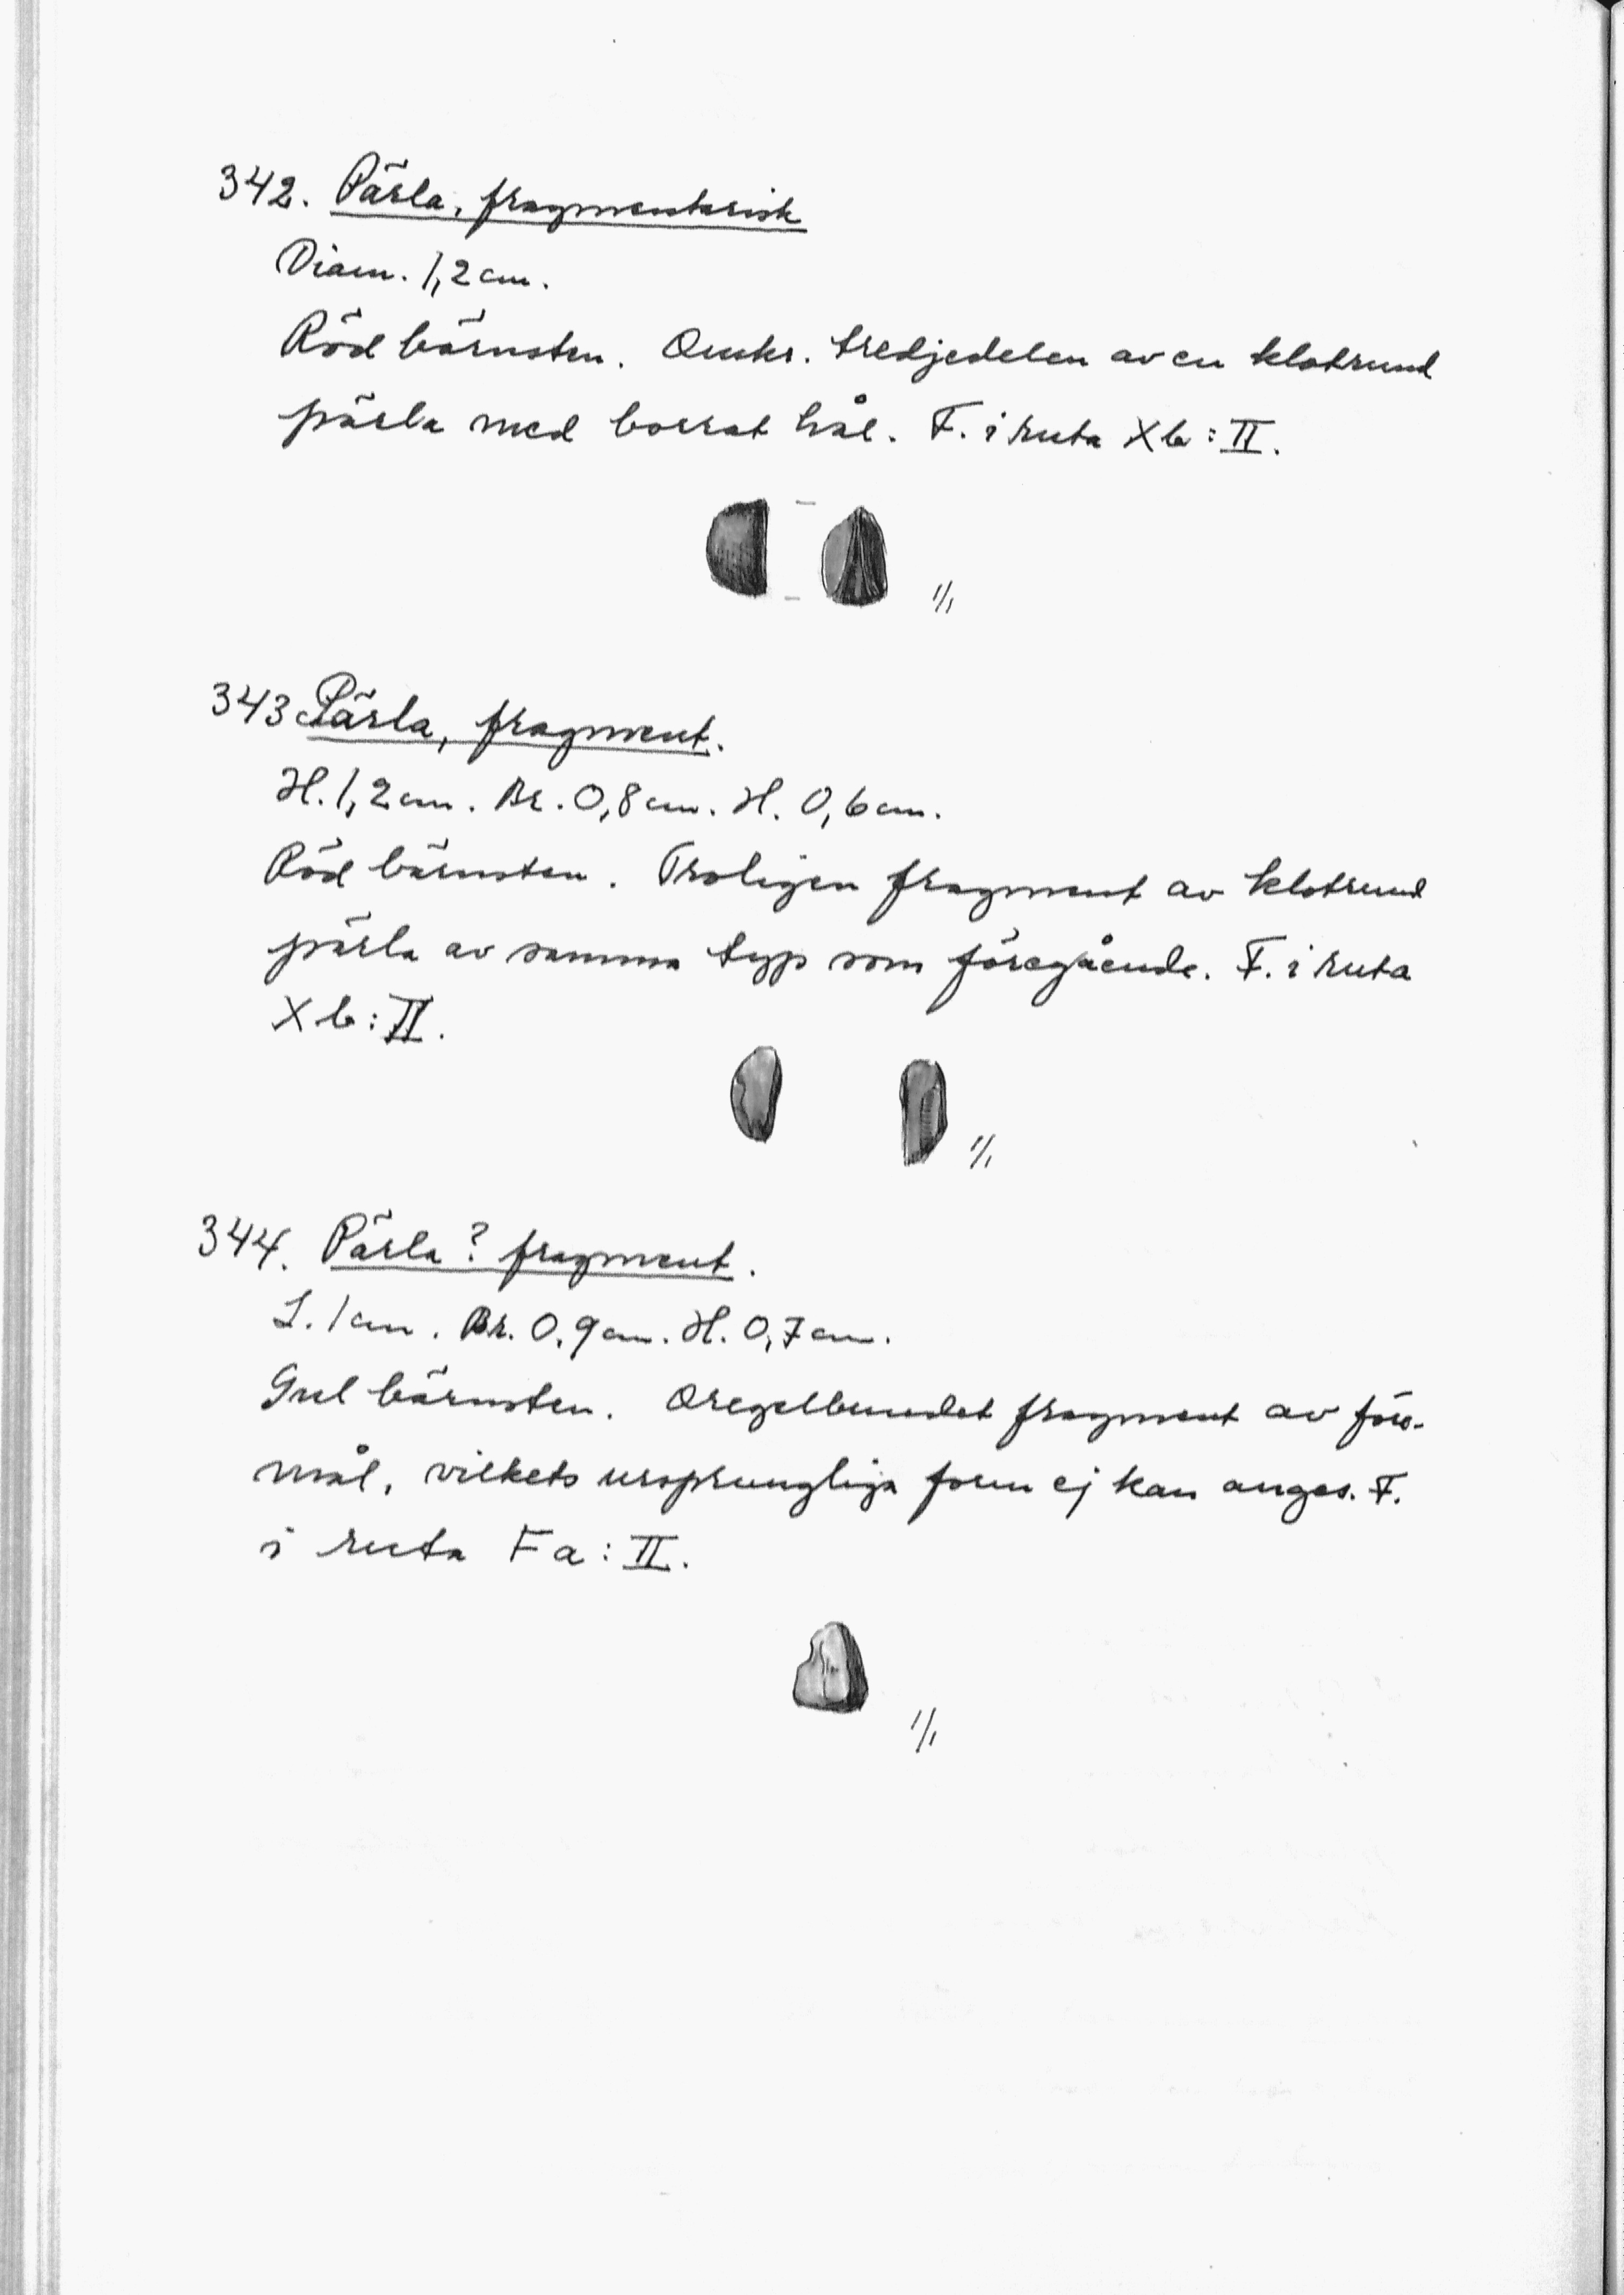 342. Pärla, fragmentarisk
Diam. 1,2 cm.
Röd bärnsten. Omkr. tredjedelen av en klotrund
pärla med borrat hål. F. i ruta Xb:II.
1/1
343 Pärla, fragment.
H. 1,2 cm. Br. 0,8 cm. H. 0,6 cm.
Röd bärnsten. Troligen fragment av klotrund
pärla av samma typ som föregående. F. i ruta
Xb:II.
1/1
344. Pärla? fragment.
L. 1 cm. Br. 0,9 cm. H. 0,7 cm.
Gul bärnsten. Oregelbundet fragment av före-
mål, vilkets ursprungliga form ej kan anges. F.
i ruta Fa:II.
1/1